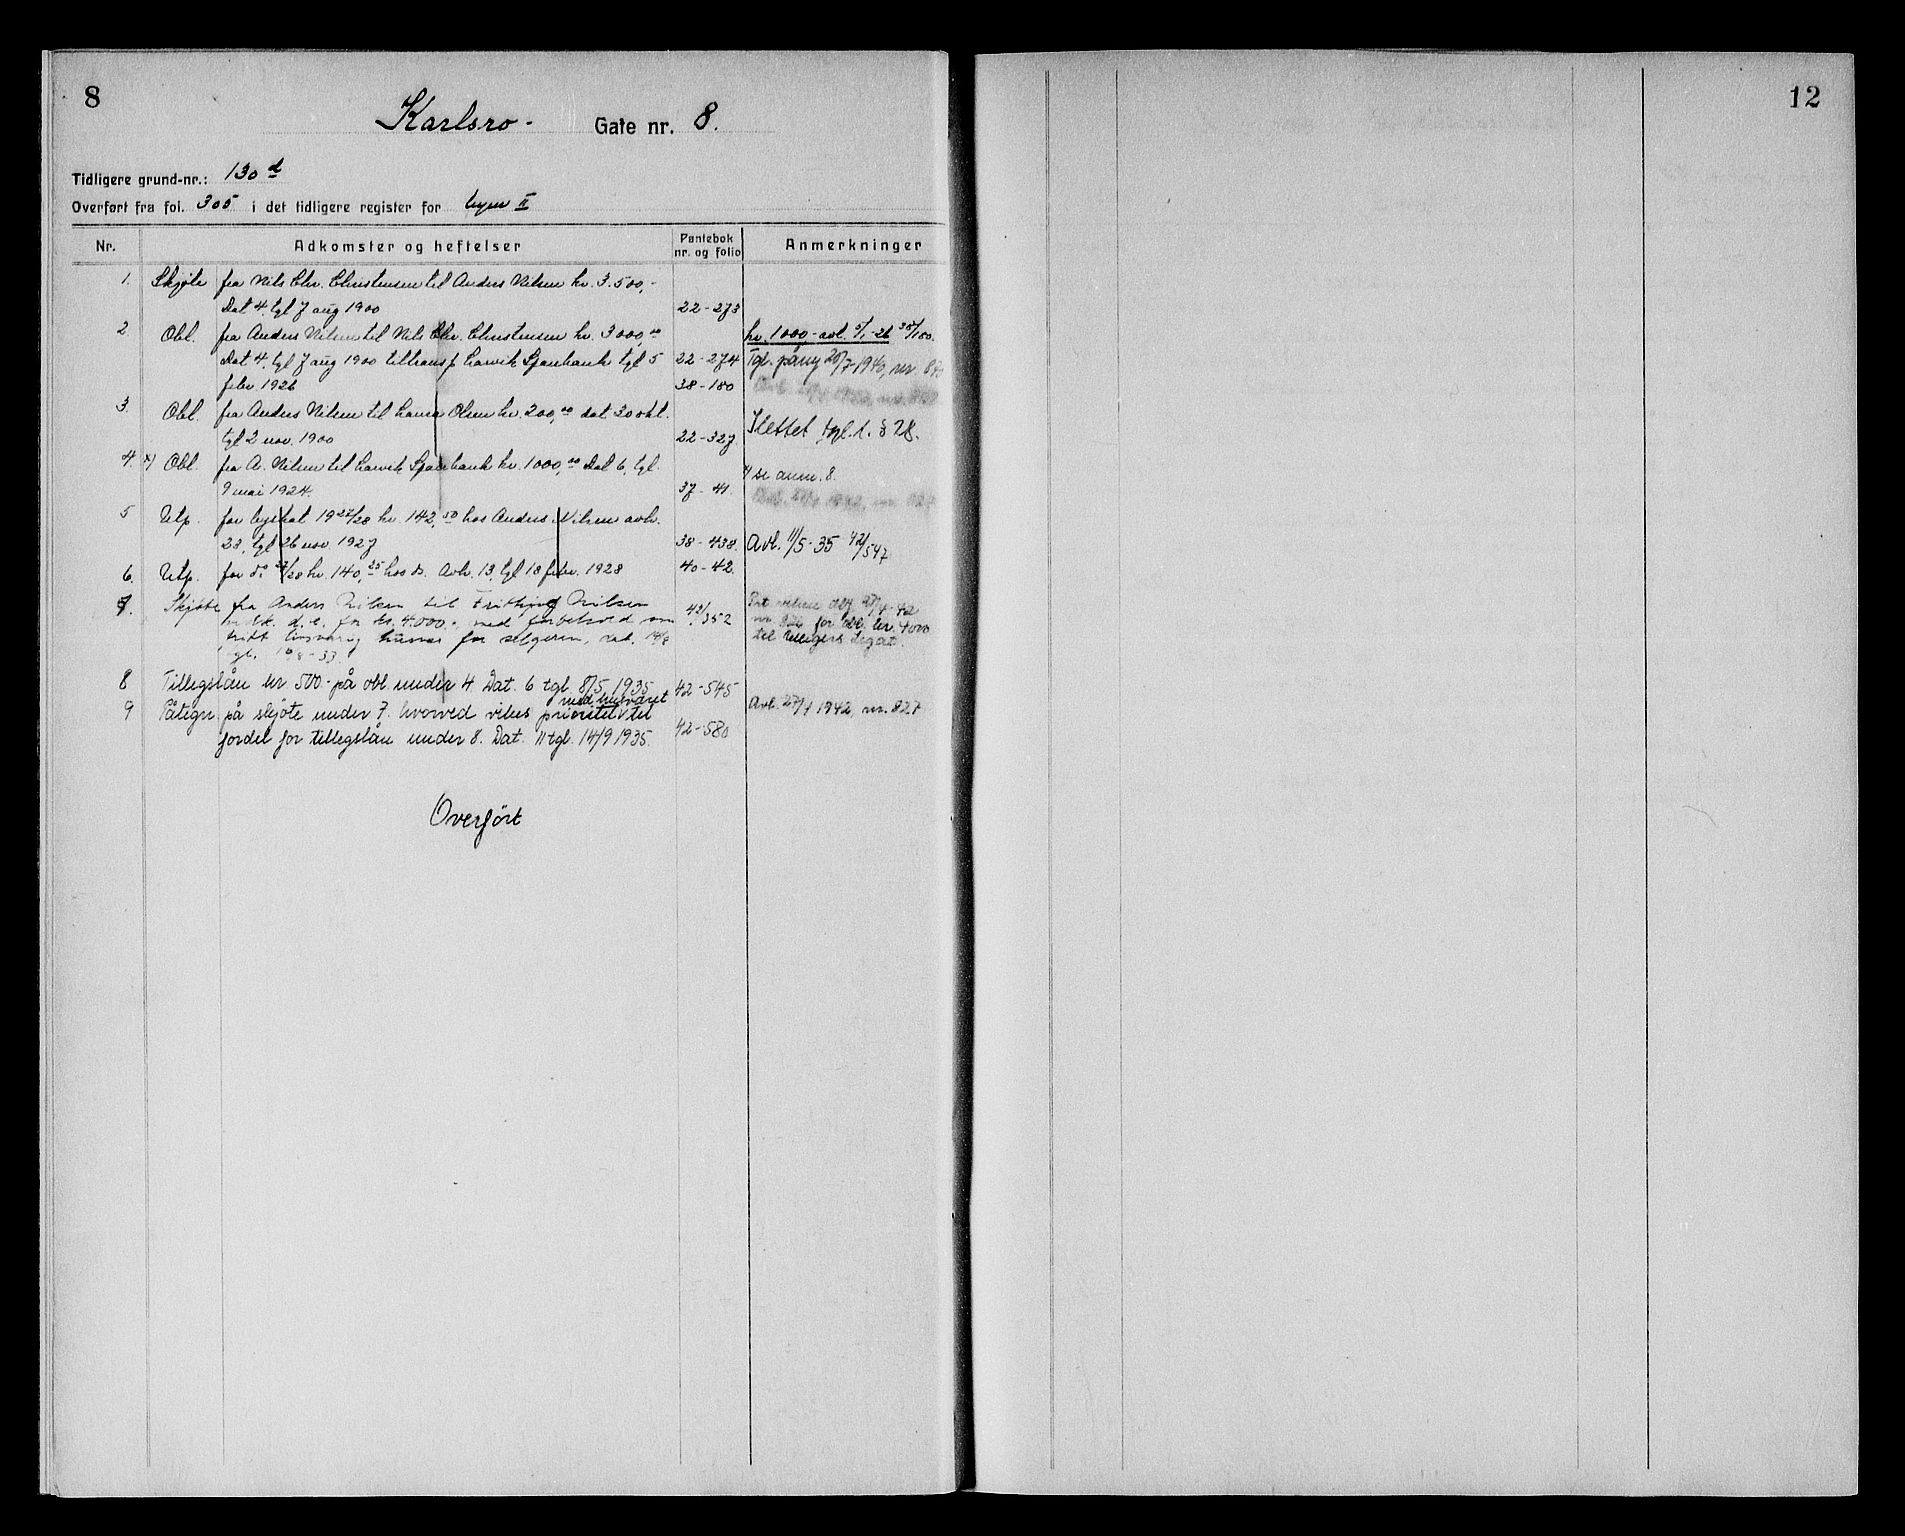 8
Karlsro- Gate nr. 8.
Tidligere grund-nr.: 130 d
Overført fra fol. 305 i det tidligere register for byen II
Nr. Adkomster og heftelser Pantebok nr. og folio Anmerkninger
1. Skjøte fra Nils Chr. Christensen til Anders Nilsen kr. 3.500,-
Dat 4, tgl 7 aug 1900 22-273
2 Obl. fra Anders Nilsen til Nils Chr. Christensen kr. 3000,00 kr. 1000,- avl. 5/1-26 38/180.
Dat 4, tgl 7 aug 1900 til transp Larvik Sparebank tgl 5 22-274 Tgl. påny 20/7-1940, nr.
febr. 1926 38-180
3. Obl. fra Anders Nilsen til Laura Olsen kr. 200,00 dat 30 okt.
tgl 2 nov. 1900 22-327. Slettet tgl. l. § 28.
4. x) Obl. fra A. Nilsen til Larvik Sparebank kr. 1000,00 Dat 6, tgl. x se anm. 8.
9 mai 1924. 37-41.
5 Utp. for byskat 1927/28 kr. 142,50 hos Anders Nilsen avh.
23, tgl 26 nov. 1927 38-438. Avl. 11/5-35 42/547
6. Utp. for do 27/28 kr. 140,25 hos do. Avh. 13, tgl 18 febr. 1928 40-42.
7. Skjøte fra Anders Nilsen til Frithjof Nilsen
d.e. for kr. 4.000,- med forbehold om 42/352 for obl. kr. 4000
fritt livsvarig husvær for selgeren, dat. 14/8 til legat.
tgl. 16/8-33.
8 Tillegslån kr. 500.- på obl. under 4. Dat. 6 tgl. 8/5 1935 42-545
9 Påtegn. på skjøte under 7. hvorved vikes prioritet med husværet til Avl. 27/4 1942, nr. 827
fordel for tillegslån under 8. Dat. 11 tgl. 14/9 1935. 42-580
Overført
12